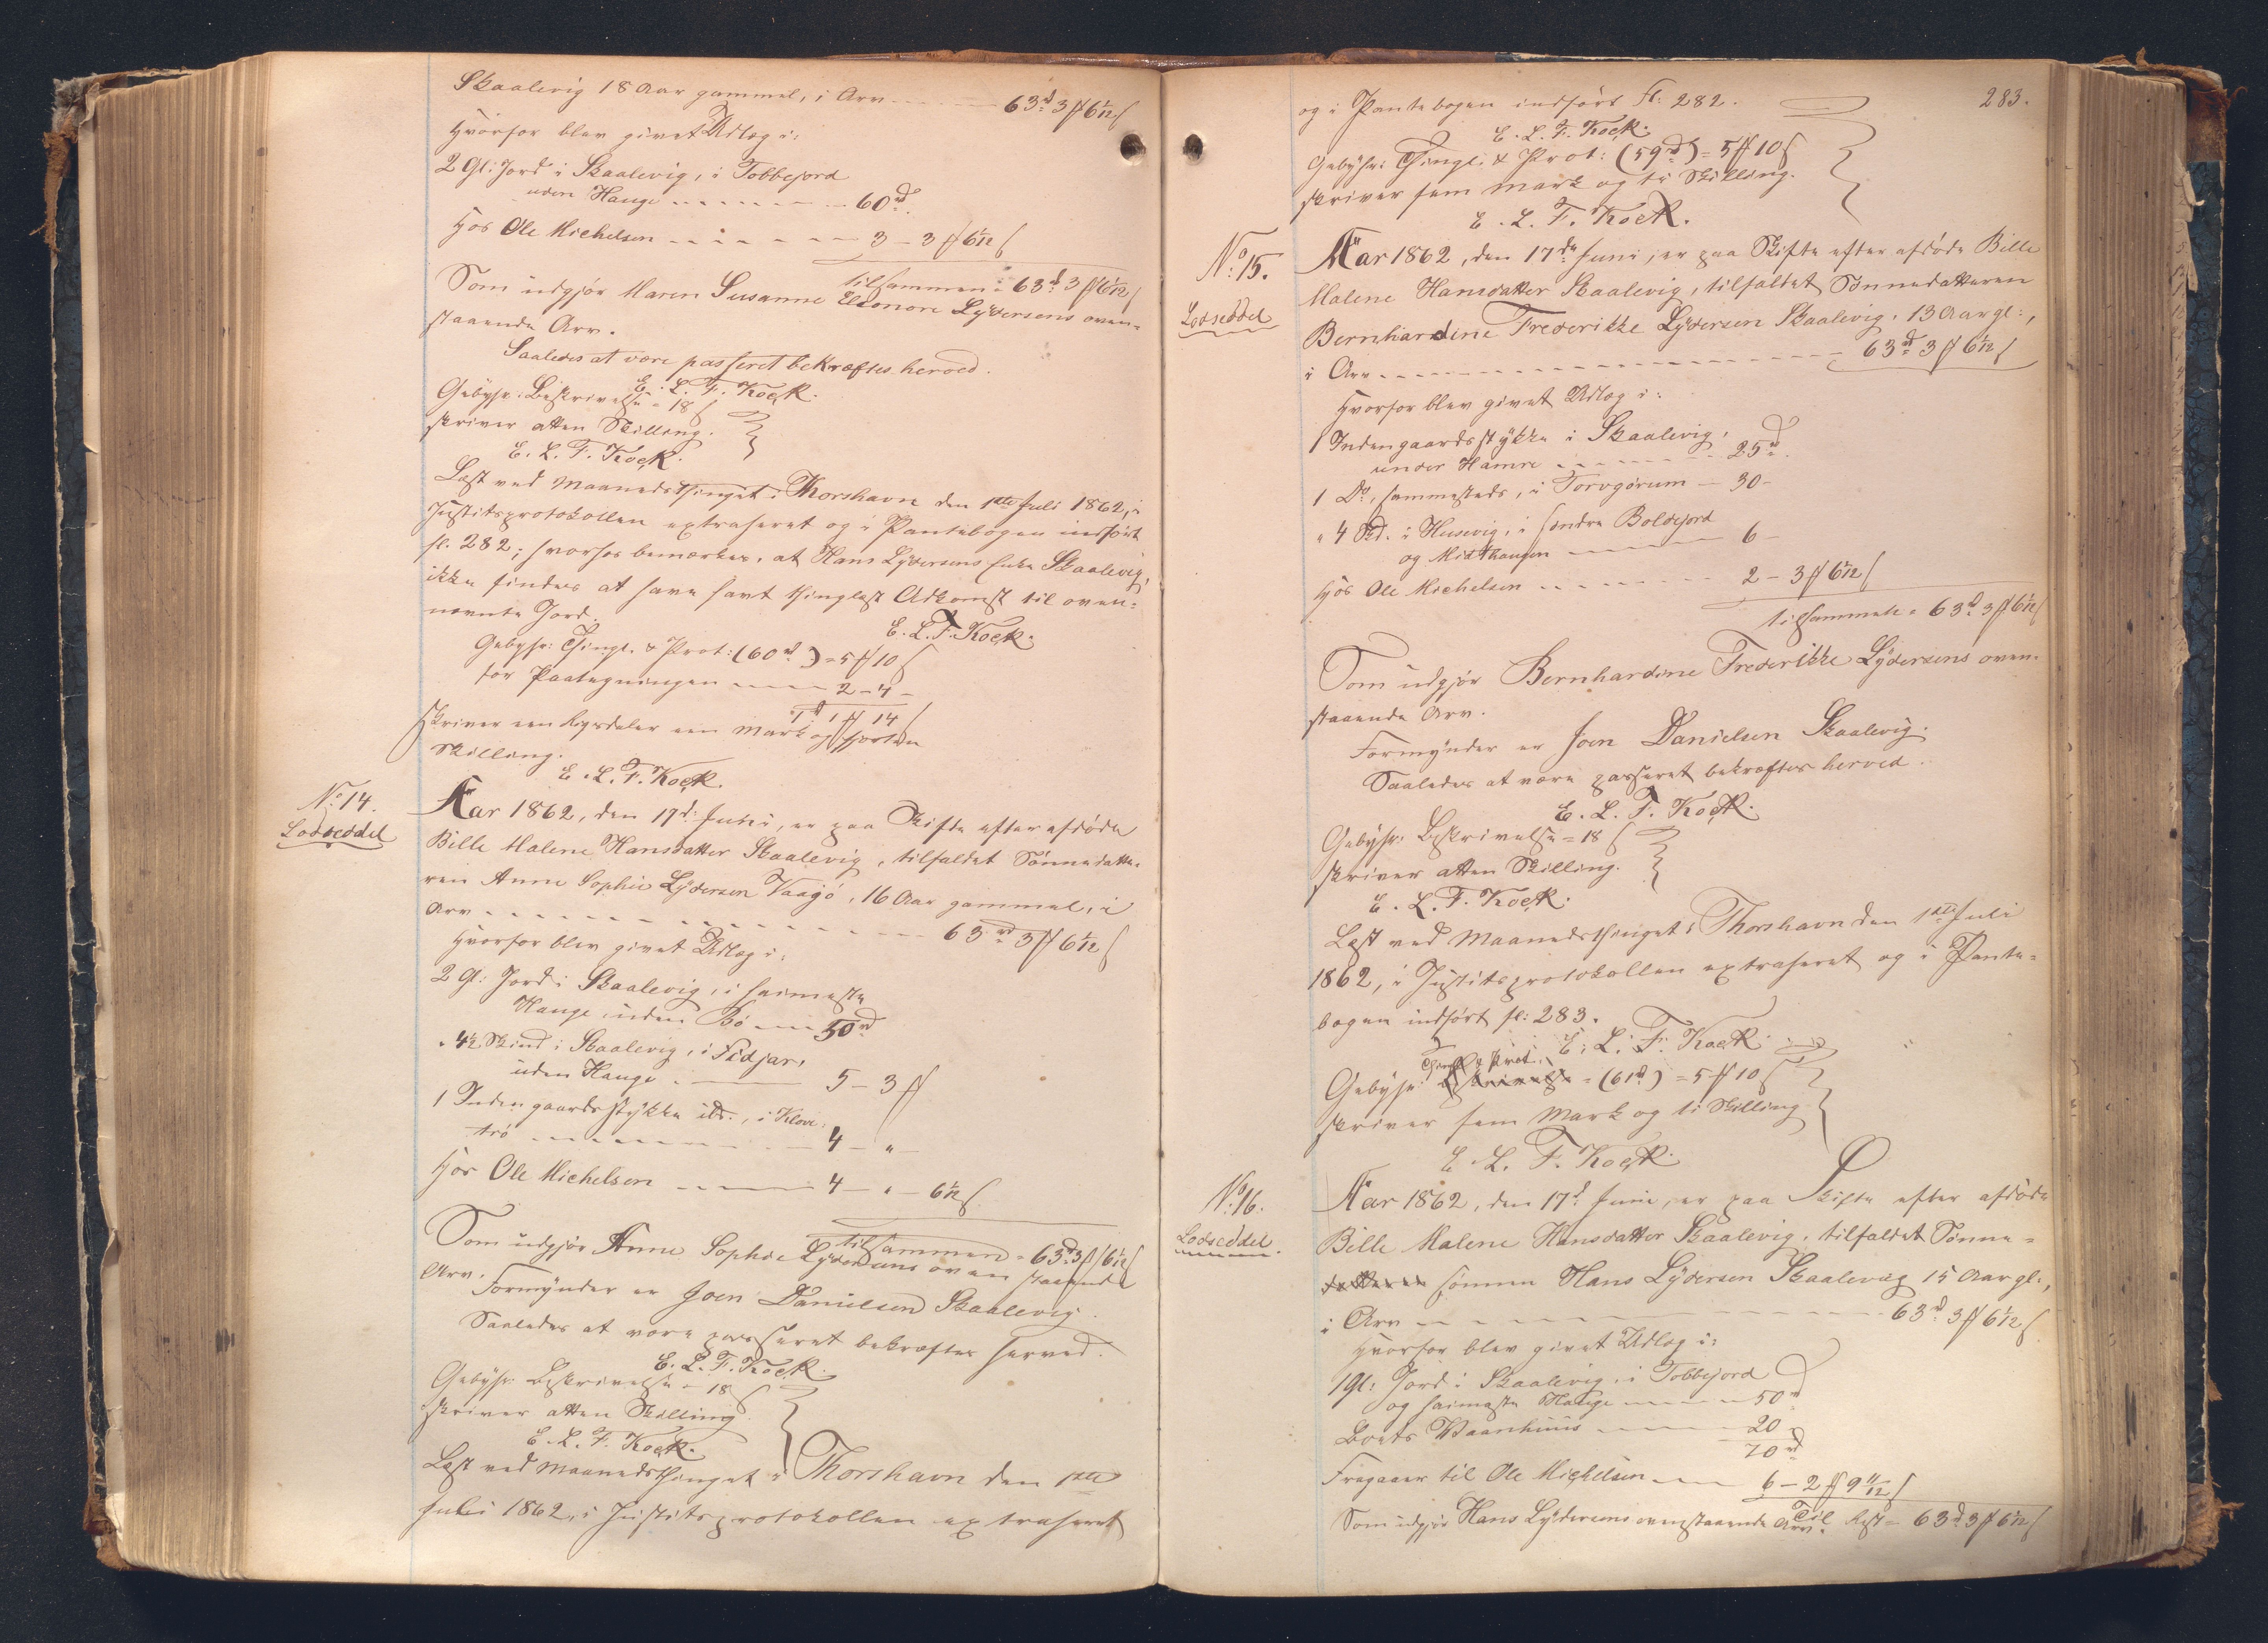 Skaalevig 18 Aar gammel, i Arv - - - - 63rd 3 ƒ 6 1/12 ß
Hvorfor blev givet Udlæg i:
2 Gl: Jord i Skaalevig, i Tobbejord
uden Hauge - - - - - - - 60rd.
Hos Ole Michelsen - - - - - - - 3 - 3 ƒ 6 1/12 ß
tilsammen = 63rd 3 ƒ 6 1/12 ß
Som udgjør Maren Susanne Elenore Lydersens oven-
staaende Arv.
Saaledes at være passeret bekræftes herved.
E. L. F. Kock.
Gebyhr: Beskrivelse = 18 ß
skriver atten Skilling.
E. L. F. Kock.
Læst ved Maanedsthinget i Thorshavn den 1ste Juli 1862, i
Justitsprotokollen extraheret og i Pantebogen indført
fl. 282; hvorhos bemærkes, at Hans Lydersens Enke Skaalevig,
ikke findes at have havt thinglæst Adkomst til oven-
nævnte Jord.
E. L. F. Kock.
Gebyhr: Thingl. & Prot: (60rd) = 5 ƒ 10 ß
for Paategningen - - - - 2 - 4 -
1rd 1 ƒ 14 ß
skriver een Rigsdaler een Mark og fjorten
Skilling.
E. L. F. Kock.
No. 14.
Lodseddel
Aar 1862, den 17d: Juni, er paa Skifte efter afdøde
Bille Malene Hansdatter Skaalevig, tilfaldet Sønnedatte-
ren Anne Sophie Lydersen Vaagø, 16 Aar gammel, i
Arv - - - - - - - - - - 63rd 3 ƒ 6 1/12 ß
Hvorfor blev givet Udlæg i:
2 Gl: Jord i Skaalevig, i heimeste
Hauge uden Bø - - - 50rd
" 4½ Skind i Skaalevig, i Fidjar,
uden Hauge - - - 5 - 3 ƒ
1 Indengaardsstykke ibd., i Klove-
trø - - - - - - - - 4 - " -
Hos Ole Michelsen - - - - 4 - " - 6 1/12 ß
tilsammen = 63rd 3 ƒ 6 1/12 ß
Som udgjør Anne Sophie Lydersens ovenstaaende
Arv.
Formynder er Joen Danielsen Skaalevig.
Saaledes at være passeret bekræftes herved.
E. L. F. Kock.
Gebyhr: Beskrivelse = 18 ß
skriver atten Skilling
E. L. F. Kock.
Læst ved Maanedsthinget i Thorshavn den 1ste
Juli 1862, i Justitsprotokollen extraheret
283.
og i Pantebogen indført fl: 282.
E. L. F. Kock.
Gebyhr: Thingl: & Prot: (59rd) = 5 ƒ 10 ß
skriver fem Mark og ti Skilling.
E. L. F. Kock.
No. 15.
Lodseddel
Aar 1862, den 17de Juni, er paa Skifte efter afdøde Bille
Malene Hansdatter Skaalevig, tilfaldet Sønnedatteren
Bernhardine Frederikke Lydersen Skaalevig, 13 Aar gl:,
i Arv - - - - - - - - - - 63rd 3 ƒ 6 1/12 ß
Hvorfor blev givet Udlæg i:
1 Indengaardsstykke i Skaalevig,
under Hamre - - - - - - 25rd.
1 Do, sammesteds, i Torvgórum - 30 -
" 4 Skd. i Husevig, i søndre Boldejord
og Midthaugen - - - - 6 -
Hos Ole Michelsen - - - - - - 2 - 3 ƒ 6 1/12 ß
tilsammen = 63rd 3 ƒ 6 1/12 ß
Som udgjør Bernhardine Frederikke Lydersens oven-
staaende Arv.
Formynder er Joen Danielsen Skaalevig.
Saaledes at være passeret bekræftes herved.
E. L. F. Kock.
Gebyhr: Beskrivelse = 18 ß
skriver atten Skilling.
E. L. F. Kock.
Læst ved Maanedsthinget i Thorshavn den 1ste Juli
1862, i Justitsprotokollen extraheret og i Pante-
bogen indført fl: 283.
E. L. F. Kock.
Gebyhr: Thingl. & Prot. = (61rd) = 5 ƒ 10 ß
skriver fem Mark og ti Skilling
E. L. F. Kock.
No. 16.
Lodseddel.
Aar 1862, den 17d Juni, er paa Skifte efter afdøde
Bille Malene Hansdatter Skaalevig, tilfaldet Sønne-
datteren sønnen Hans Lydersen Skaalevig 15 Aar gl:,
i Arv - - - - - - - - 63rd 3 ƒ 6 1/12 ß
Hvorfor blev givet Udlæg i:
1 Gl: Jord i Skaalevig, i Tobbejord
og heimeste Hauge - - - - 50rd
Boets Vaanhuus - - - - 20
70rd
Fragaaer til Ole Michelsen - - - 6 - 2 ƒ 9 11/12 ß
Til Rest = 63rd 3 ƒ 6 1/12 ß
Som udgjør Hans Lydersens ovenstaaende Arv.